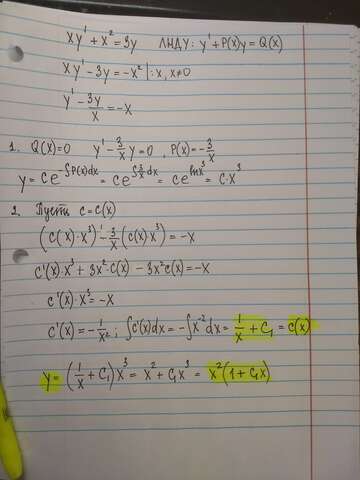 xy' + x² = 3y ЛНДУ: y' + P(x)y = Q(x)
xy' - 3y = -x² | : x, x≠0
y' - 3y/x = -x
1. Q(x)=0 y' - 3/x y = 0, P(x) = -3/x
y = ce^(-∫P(x)dx) = ce^(∫3/x dx) = ce^(ln x³) = c·x³
2. Пусть c = c(x)
(c(x)·x³)' - 3/x (c(x)x³) = -x
c'(x)·x³ + 3x²·c(x) - 3x²c(x) = -x
c'(x)·x³ = -x
c'(x) = -1/x²; ∫c'(x)dx = -∫x⁻²dx = 1/x + C₁ = c(x)
y = (1/x + C₁)x³ = x² + C₁x³ = x²(1 + C₁x)